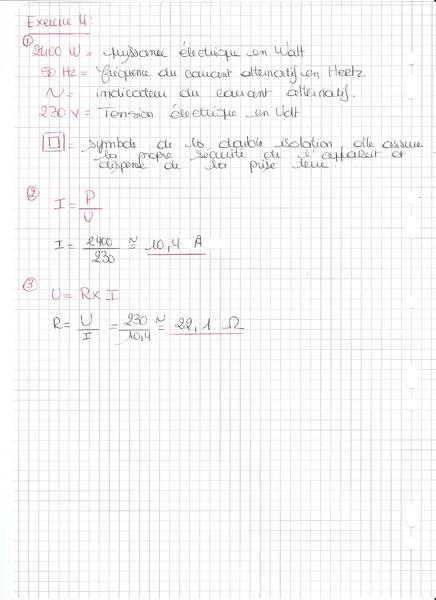 Exercice 4:
① 2400 W = puissance électrique en Watt
50 Hz = fréquence du courant alternatif en Hertz.
~ = indicateur du courant alternatif.
230 V = Tension électrique en Volt
= symbole de la double isolation, elle assure
la propre sécurité de l'appareil et
dispense de la prise terre.
② I = P/U
I = 2400/230 ≃ 10,4 A
③ U = R x I
R = U/I = 230/10,4 ≃ 22,1 Ω